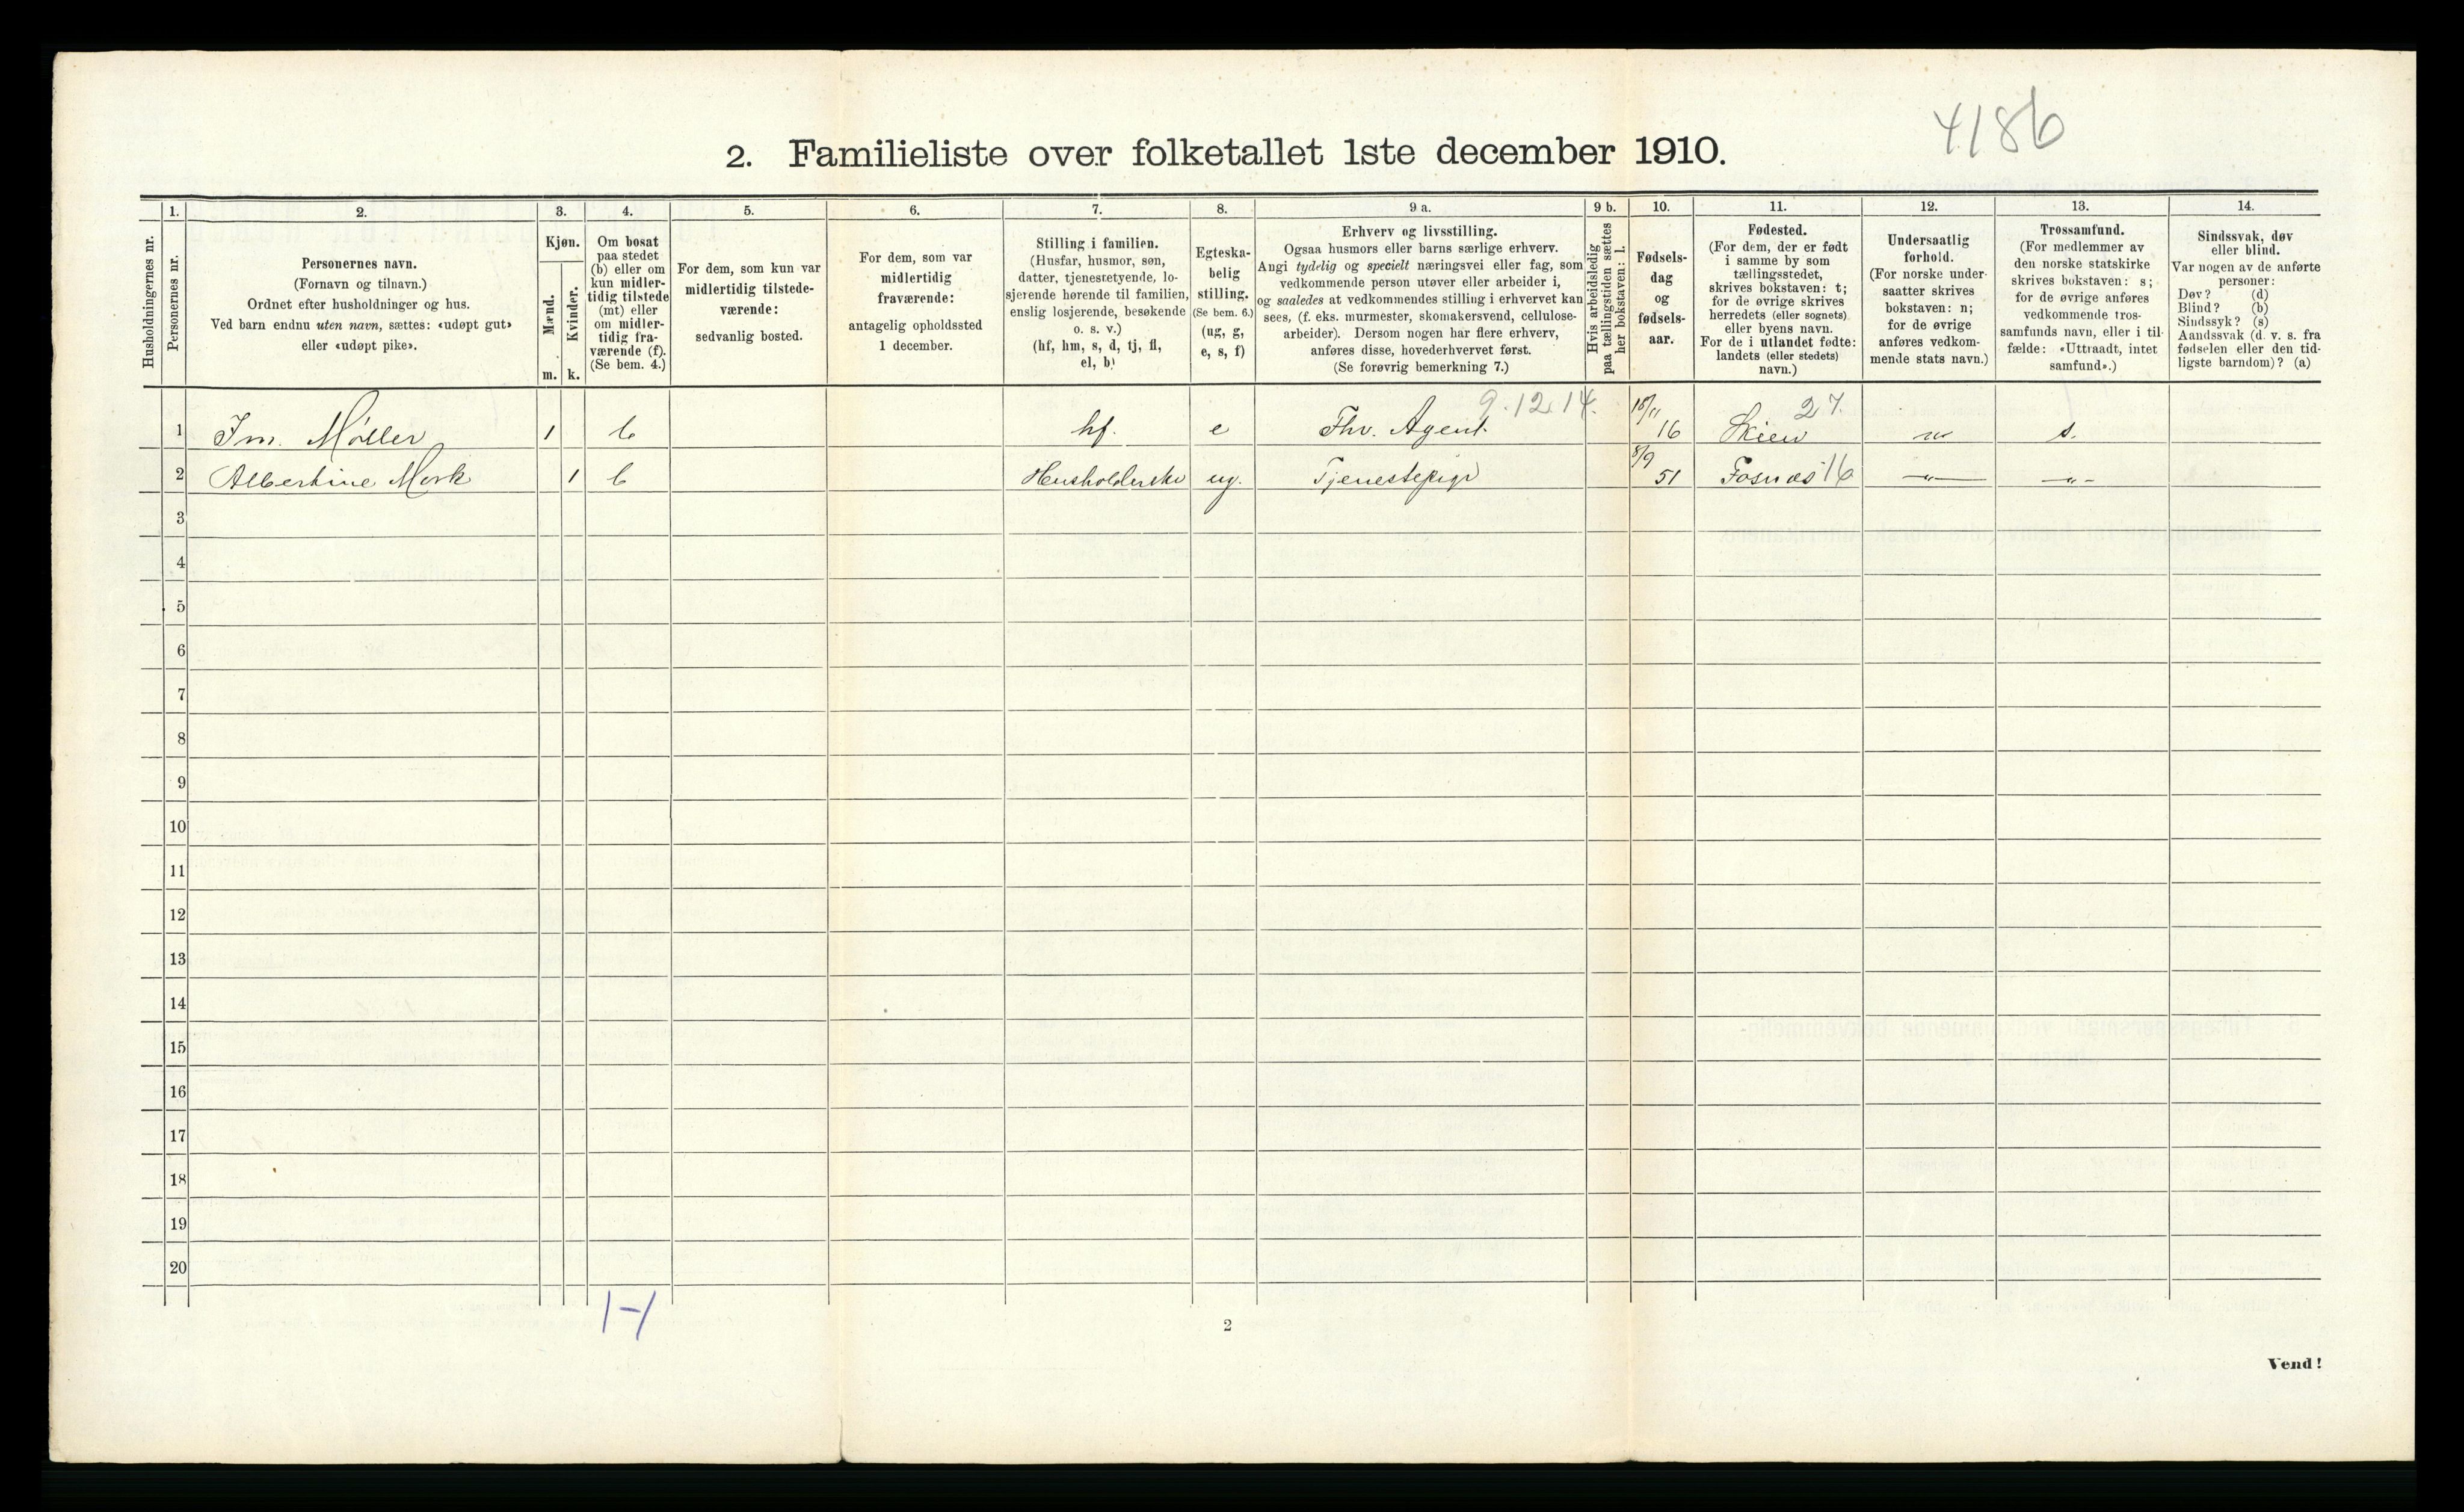 4186
2. Familieliste over folketallet 1ste december 1910.
Husholdningernes nr.
1.
Personernes nr.
2.
Personernes navn.
(Fornavn og tilnavn.)
Ordnet efter husholdninger og hus.
Ved barn endnu uten navn, sættes: «udøpt gut»
eller «udøpt pike».
3.
Kjøn.
Mænd.
Kvinder.
m. k.
4.
Om bosat
paa stedet
(b) eller om
kun midler-
tidig tilstede
(mt) eller
om midler-
tidig fra-
værende (f).
(Se bem. 4.)
5.
For dem, som kun var
midlertidig tilstede-
værende:
sedvanlig bosted.
6.
For dem, som var
midlertidig
fraværende:
antagelig opholdssted
1 december.
7.
Stilling i familien.
(Husfar, husmor, søn,
datter, tjenestetyende, lo-
sjerende hørende til familien,
enslig losjerende, besøkende
o. s. v.)
(hf, hm, s, d, tj, fl,
el, b)
8.
Egteska-
belig
stilling.
(Se bem. 6.)
(ug, g,
e, s, f)
9 a.
Erhverv og livsstilling.
Ogsaa husmors eller barns særlige erhverv.
Angi tydelig og specielt næringsvei eller fag, som
vedkommende person utøver eller arbeider i,
og saaledes at vedkommendes stilling i erhvervet kan
sees, (f. eks. murmester, skomakersvend, cellulose-
arbeider). Dersom nogen har flere erhverv,
anføres disse, hovederhvervet først.
(Se forøvrig bemerkning 7.)
9 b.
Hvis arbeidsledig
paa tællingstiden sættes
her bokstaven: l.
10.
Fødsels-
dag
og
fødsels-
aar.
11.
Fødested.
(For dem, der er født
i samme by som
tællingsstedet,
skrives bokstaven: t;
for de øvrige skrives
herredets (eller sognets)
eller byens navn.
For de i utlandet fødte:
landets (eller stedets)
navn.)
12.
Undersaatlig
forhold.
(For norske under-
saatter skrives
bokstaven: n;
for de øvrige
anføres vedkom-
mende stats navn.)
13.
Trossamfund.
(For medlemmer av
den norske statskirke
skrives bokstaven: s;
for de øvrige anføres
vedkommende tros-
samfunds navn, eller i til-
fælde: «Uttraadt, intet
samfund».)
14.
Sindssvak, døv
eller blind.
Var nogen av de anførte
personer:
Døv? (d)
Blind? (b)
Sindssyk? (s)
Aandssvak (d. v. s. fra
fødselen eller den tid-
ligste barndom)? (a)
9.12.14. 27.
1 Im. Møller 1 b hf. e Fhv. Agent 16 Skien n s.
2 Albertine Mork 1 b Husholderske ug. Tjenestepige 8/9 51 Fosnæs 16 — " — — " —
3
4
5
6
7
8
9
10
11
12
13
14
15
16
17
18
19
20
1-1
2
Vend!